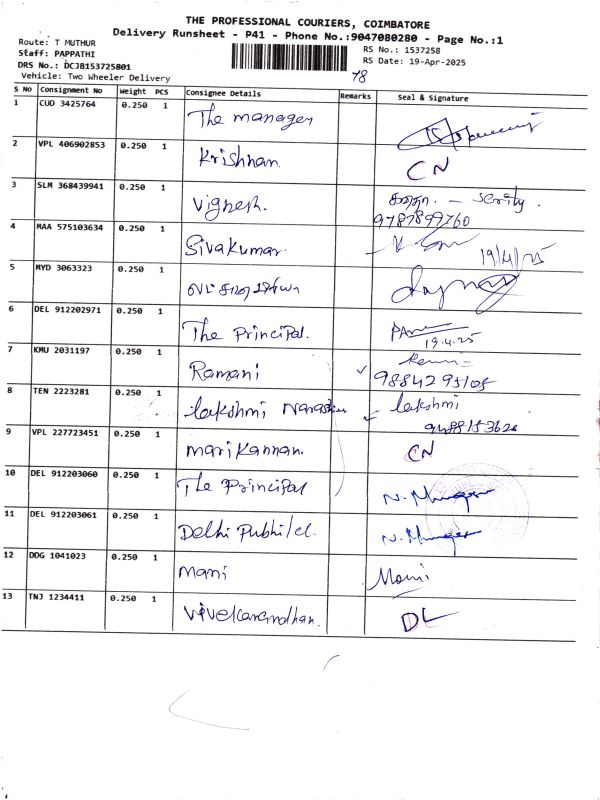 THE PROFESSIONAL COURIERS, COIMBATORE
Delivery Runsheet - P41 - Phone No.:9047080280 - Page No.:1
Route: T MUTHUR
RS No.: 1537258
Staff: PAPPATHI
RS Date: 19-Apr-2025
DRS No.: DCJB153725801
Vehicle: Two Wheeler Delivery
78
S No Consignment No Weight PCS Consignee Details Remarks Seal & Signature
1 CUD 3425764 0.250 1 The manager
2 VPL 406902853 0.250 1 Krishnan. CN
3 SLM 368439941 0.250 1 Vignesh.
9787899760
4 MAA 575103634 0.250 1 Sivakumar. 19/4/25
5 MYD 3063323 0.250 1
6 DEL 912202971 0.250 1 The Principal.
19.4.25
7 KMU 2031197 0.250 1 Ramani
9884295105
8 TEN 2223281 0.250 1 lakshmi lakshmi
9 VPL 227723451 0.250 1 marikannan. CN
10 DEL 912203060 0.250 1 The Principal N. Murugan
11 DEL 912203061 0.250 1 Delhi N. Murugan
12 DDG 1041023 0.250 1 mani Mani
13 TNJ 1234411 0.250 1 DL